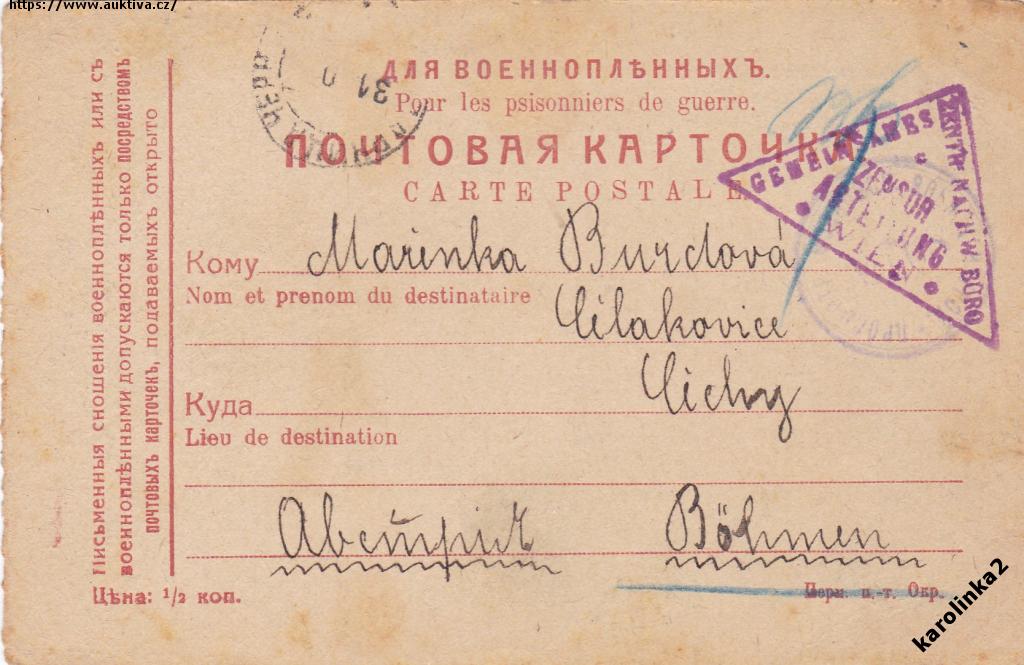 https://www.auktiva.cz/
ДЛЯ ВОЕННОПЛѢННЫХЪ.
Pour les psisonniers de guerre.
ПОЧТОВАЯ КАРТОЧКА
CARTE POSTALE
31
GEMEINSAMES
ZENTR. NACHW. BÜRO
ZENSUR
ABTEILUNG
WIEN
Marinka Burdová
Кому
Nom et prenom du destinataire
Čilakovice
Cichy
Куда
Lieu de destination
Австрия Böhmen
Перм. п.-т. Окр.
Письменныя сношенія военноплѣнныхъ или съ
военноплѣнными допускаются только посредствомъ
почтовыхъ карточекъ, подаваемыхъ открыто
Цѣна: 1/2 коп.
karolinka2